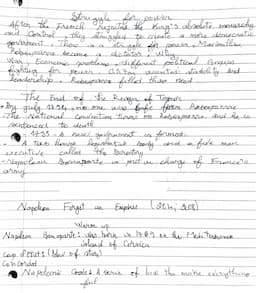 Struggle for power
After the French rejected the King's absolute monarchy
and control, they struggled to create a more democratic
government. How a struggle for power, Maximilien
Robespierre became a dictator? Why
War, Economic problems, different political groups
fighting for power. Citizens wanted stability and
leadership. Robespierre filled these need
The End of the Reign of Terror
By July 1794, no one was safe from Robespierre
The National Convention turns on Robespierre and he is
sentenced to death
1795: A new government is formed
A two house legislative body and a five man
executive called the Directory
Napoleon Bonaparte is put in charge of France's
army
Napoleon Forges an Empire
Warm up
Napoleon Bonaparte: was born in 1769 on the Mediterranean
island of Corsica
coup d'état: (blow of state)
Concordat
Napoleon's Goals: